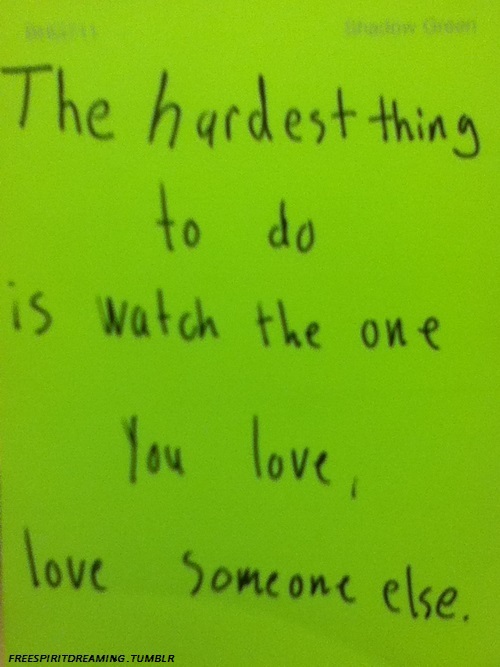 Shadow Green
The hardest thing
to do
is watch the one
You love,
love someone else.
FREESPIRITDREAMING.TUMBLR